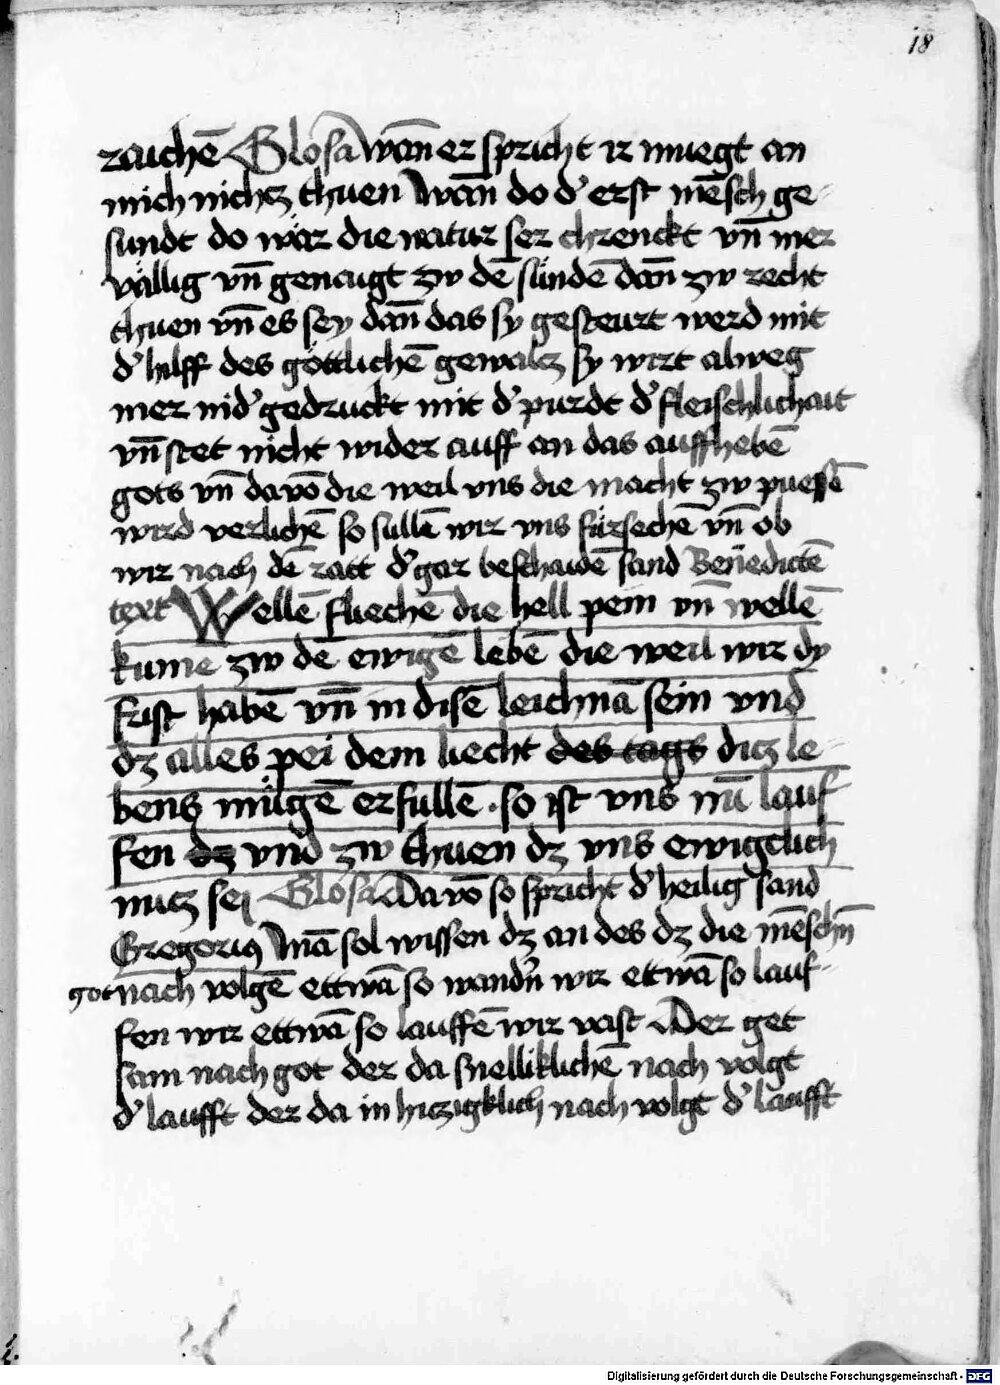 18
raichē Glosa Wan̄ er spricht ir muegt an
mich nichtz thuen Wan̄ do d' erst mēsch ge-
sundt do wär die natur ser chrenckt vn̄ mer
vällig vn̄ genaigt zw dē sündē dan̄ zw recht
thuen vn̄ es sey dan̄ das sy gesteurt werd mit
d' hilff des göttlichē gewaltz sy wirt alweg
mer nid' gedruckt mit d' purdt d' fleischlichait
vn̄ stet nicht wider auff an das auffhebē
gots vn̄ davō die weil vns die macht zw puessē
wird verlichē so sullē wir vns fürsechē vn̄ ob
wir nach dē ratt d' gar beschaidē sand Benedictē
text Wellē fliechē die hell pein vn̄ wellē
kume zw dē ewigē lebē die weil wir dy
frist habē vn̄ in disē leichnā sein vnd
dz alles pei dem liecht des tags ditz le-
bens mügē erfullē · so ist vns nū lauf
fen dz vnd zw thuen dz vns ewigclich
nutz sej Glosa Davō so spricht d' heilig sand
Gregorius Mā sol wissen dz an des dz die mēschn̄
got nach volgē ettwā so wandn̄ wir ettwā so lauf-
fen wir ettwā so lauffē wir vast Der get
sam nach got der da snelliklichē nach volgt
d' laufft der da in hitzigklich nach volgt d' laufft
Digitalisierung gefördert durch die Deutsche Forschungsgemeinschaft - DFG